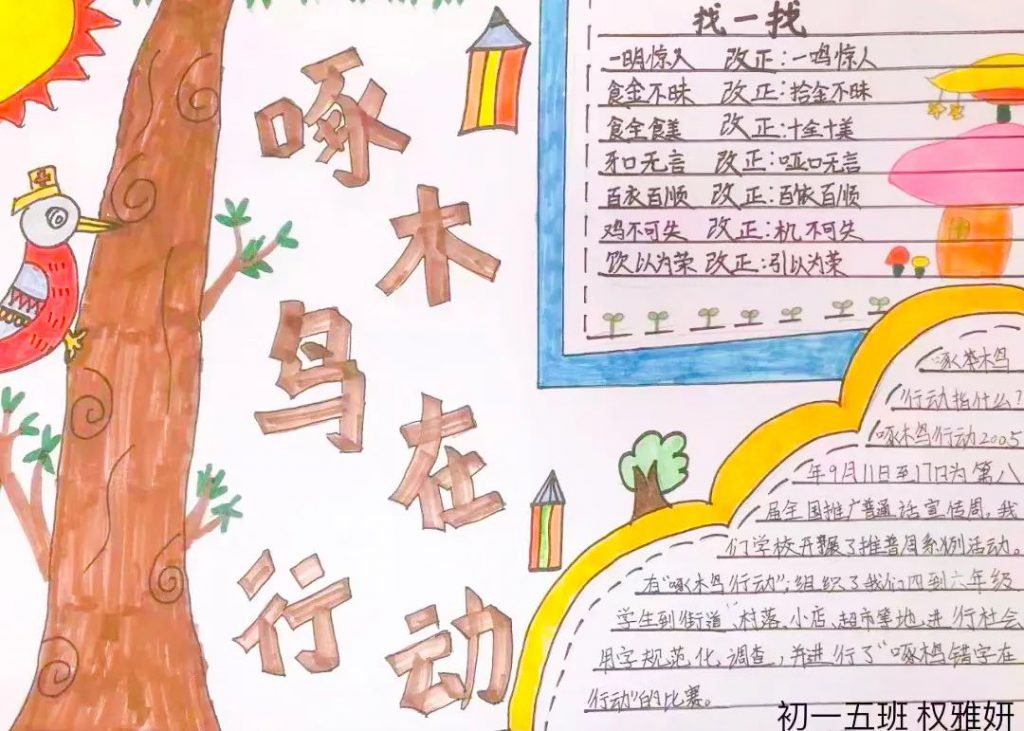 啄木鸟在行动
找一找
一明惊人 改正:一鸣惊人
食金不昧 改正:拾金不昧
食全食美 改正:十全十美
牙口无言 改正:哑口无言
百衣百顺 改正:百依百顺
鸡不可失 改正:机不可失
饮以为荣 改正:引以为荣
行动指什么?
啄木鸟行动2005
年9月11日至17日为第八
届全国推广普通话宣传周,我
们学校开展了推普周系列活动。
有“啄木鸟行动”;组织了我们四到六年级
学生到街道、村落、小店、超市等地,进行社会
用字规范化调查,并进行了“啄木鸟错字在
行动”的比赛。
初一五班 权雅妍